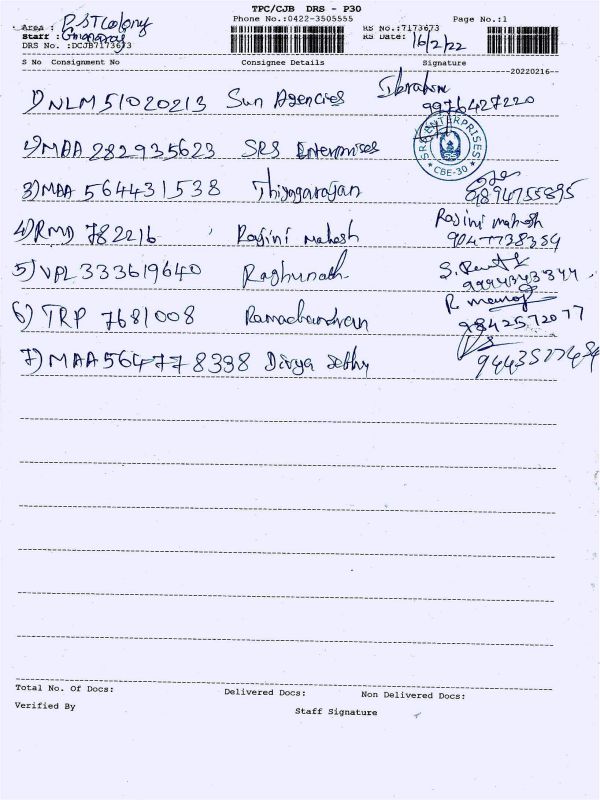 TPC/CJB DRS - P30
Area : P&T Colony Phone No.:0422-3505555 RS No.:7173673 Page No.:1
Staff : RS Date: 16/2/22
DRS No. :DCJB7173673
S No Consignment No Consignee Details Signature
20220216
1) NLM51020213 Sun Agencies Ibrahim 9976427220
2) MAA 282935623 SRS Enterprises SRS ENTERPRISES * CBE-30 *
3) MAA 564431538 Thiyagarajan 8894755895
4) RMD 782216 Rojini Mahesh Rojini mahesh
5) VPL333619640 Raghunath
6) TRP 7681008 Ramachandran R manoj 9842572077
7) MAA564778338 Divya
Total No. Of Docs: Delivered Docs: Non Delivered Docs:
Verified By Staff Signature